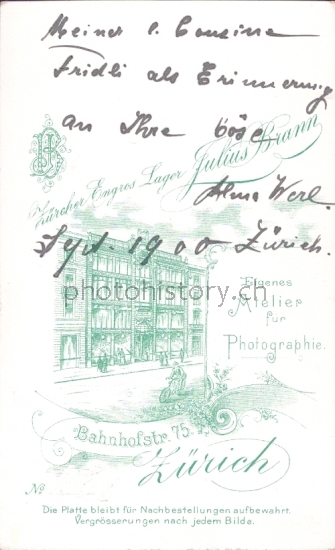 Meiner l. Cousine
Fridli als Erinnerung
an Ihre böse
JB
Zürcher Engros Lager Julius Brann
Alma Werl.
Sept 1900 Zürich.
photohistory.ch
Eigenes
Atelier
für
Photographie.
Bahnhofstr. 75.
Zürich
No
Die Platte bleibt für Nachbestellungen aufbewahrt.
Vergrösserungen nach jedem Bilde.